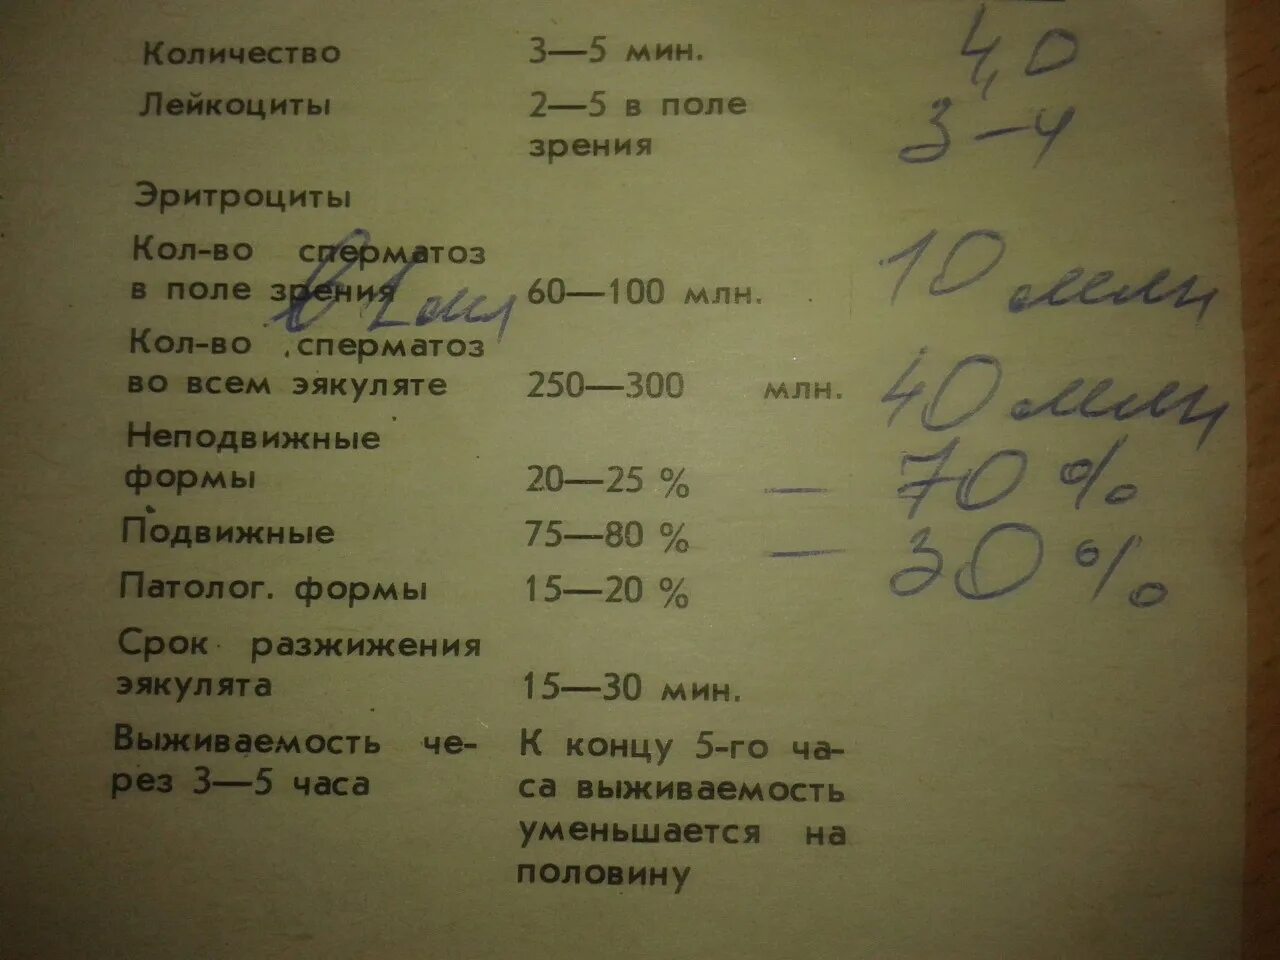 Количество 3—5 мин. 4,0
Лейкоциты 2—5 в поле 3-4
зрения
Эритроциты
Кол-во сперматоз
в поле зрения 60—100 млн. 10 млн
в 1 мл
Кол-во сперматоз
во всем эякуляте 250—300 млн. 40 млн
Неподвижные
формы 20—25 % — 70%
Подвижные 75—80 % — 30%
Патолог. формы 15—20 %
Срок разжижения
эякулята 15—30 мин.
Выживаемость че- К концу 5-го ча-
рез 3—5 часа са выживаемость
уменьшается на
половину